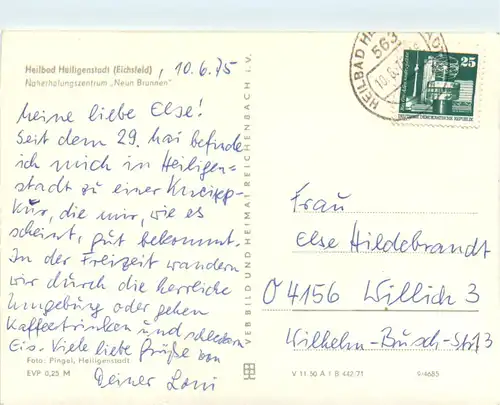 Heilbad Heiligenstadt (Eichsfeld)
Naherholungszentrum „Neun Brunnen"
, 10.6.75
Meine liebe Else!
Seit dem 29. Mai befinde
ich mich in Heiligen=
stadt zu einer Kneipp-
kur, die mir, wie es
scheint, gut bekommt.
In der Freizeit wandern
wir durch die herrliche
Umgebung oder gehen
Kaffeetrinken und schleckern
Eis. Viele liebe Grüße von
Deiner Loni
Foto: Pingel, Heiligenstadt
EVP 0,25 M
VEB BILD UND HEIMAT REICHENBACH i. V.
HEILBAD
563
10.6.75
25
DEUTSCHE DEMOKRATISCHE REPUBLIK
Frau
Else Hildebrandt
O 4156 Willich 3
Wilhelm-Busch-Str. 3
V 11 50 A 1 B 442/71